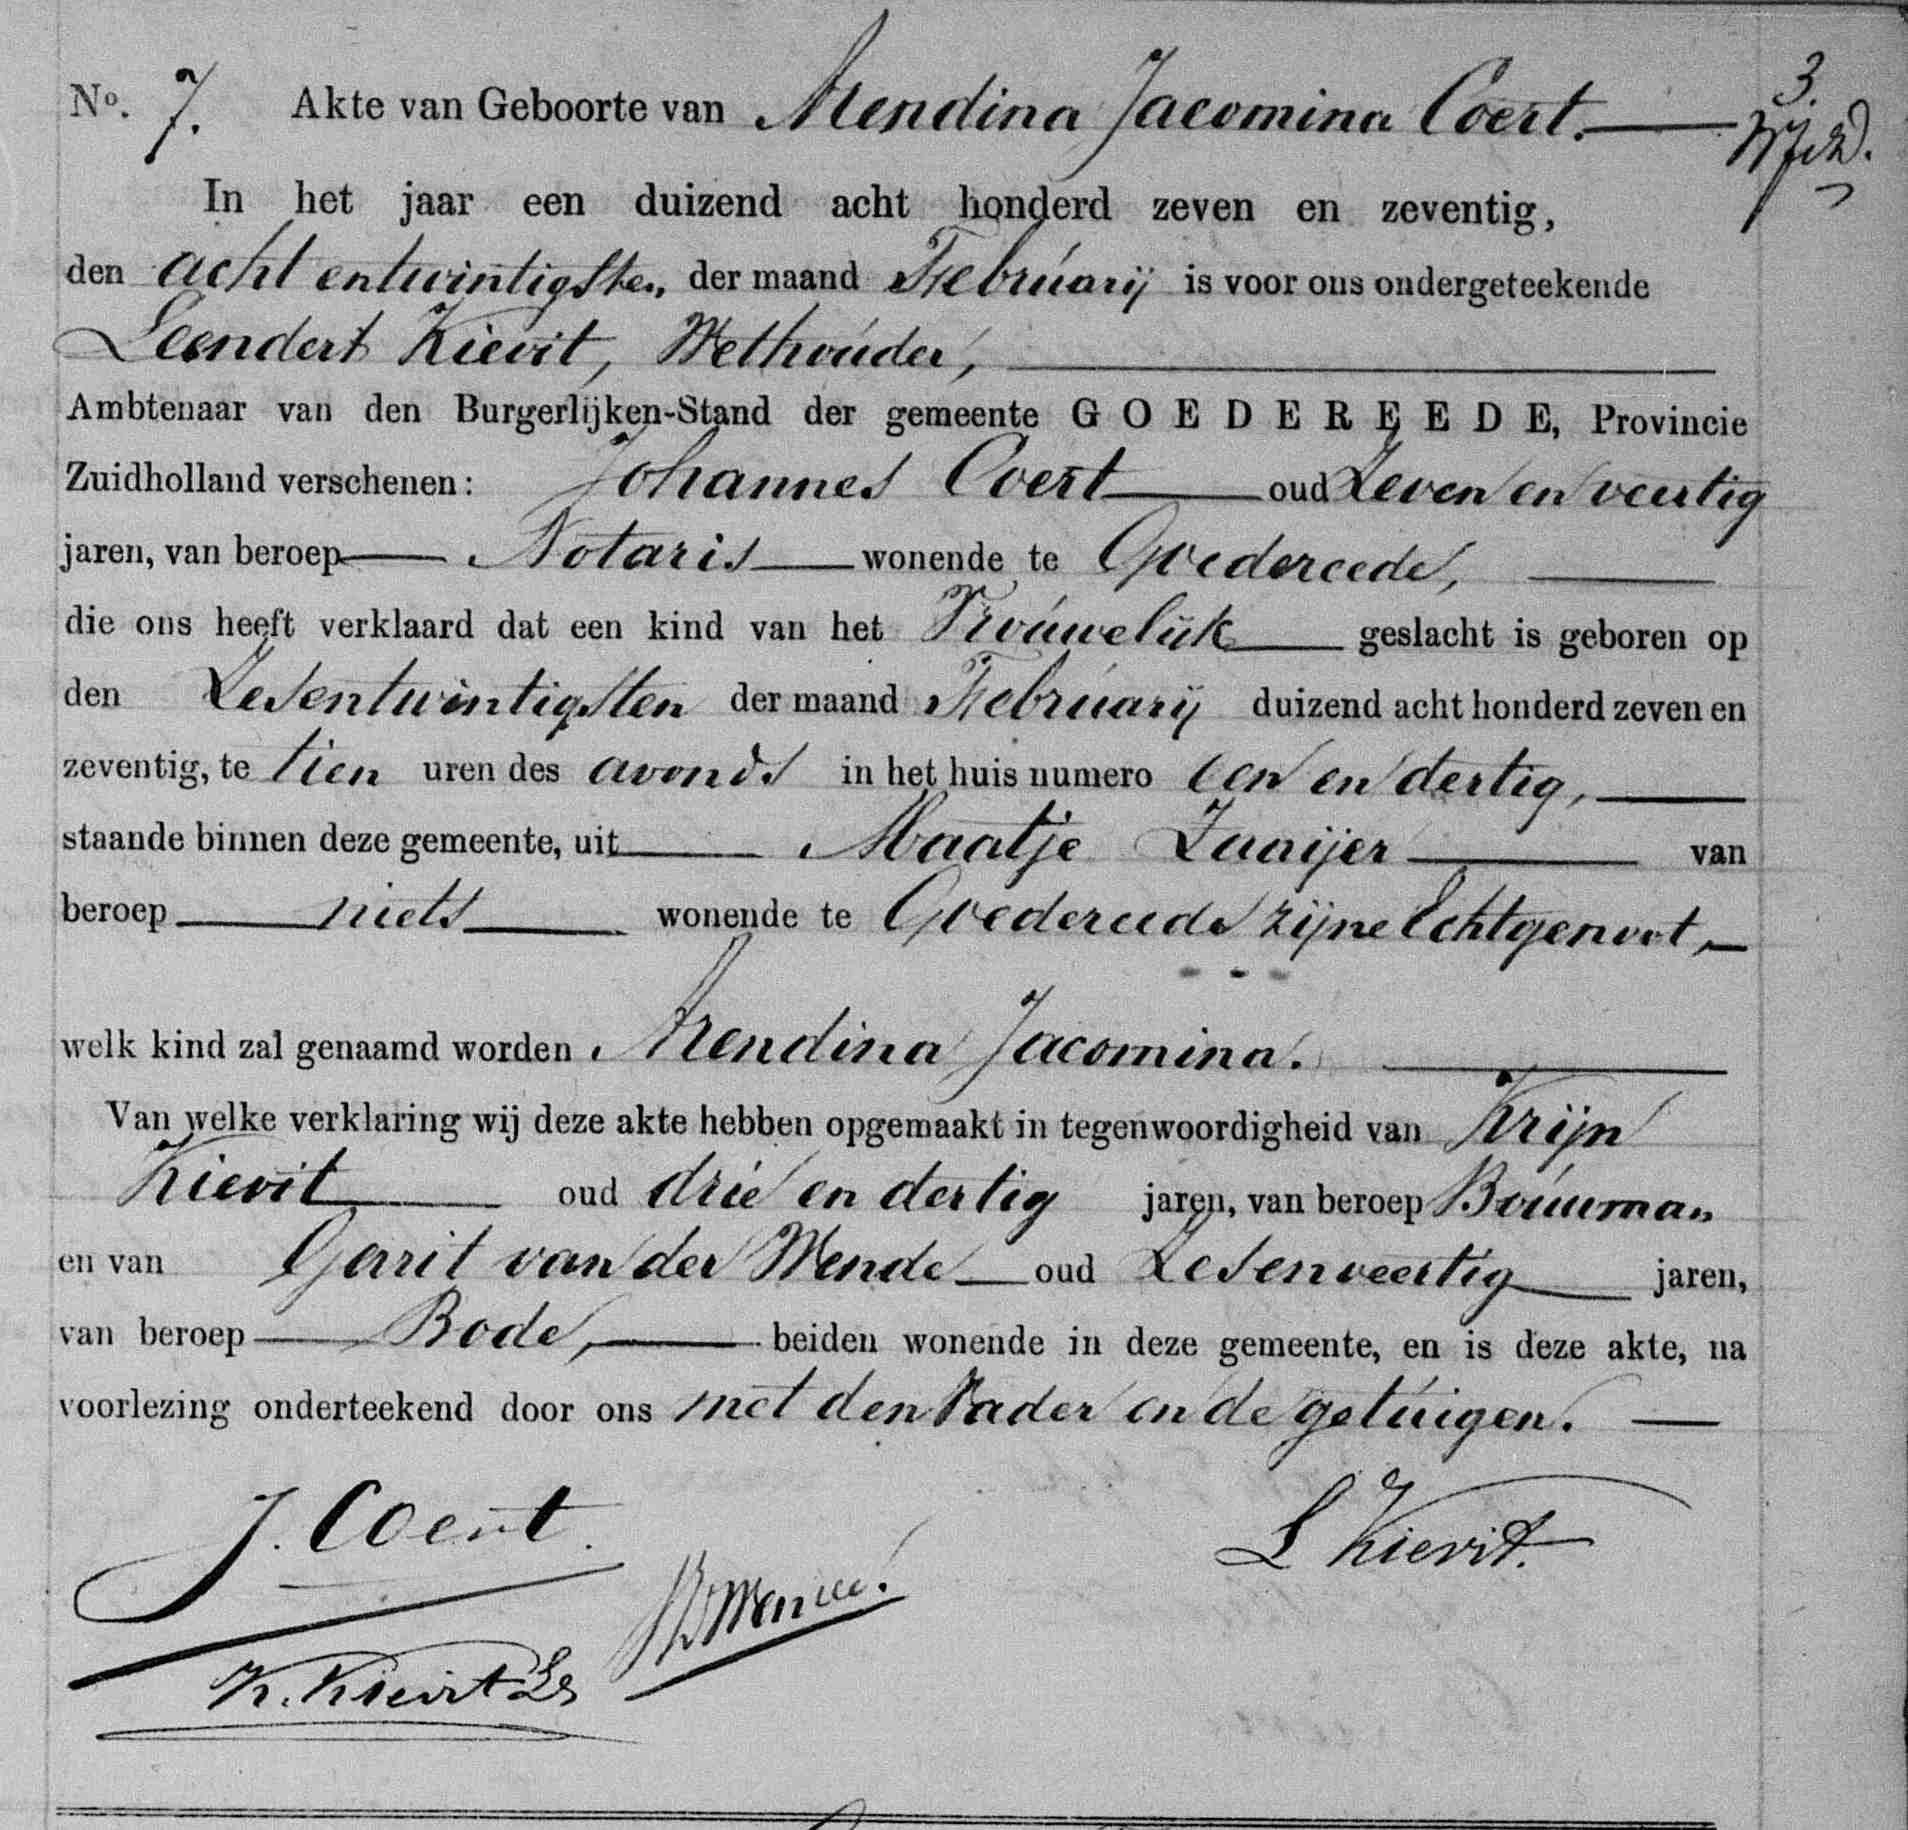 No. 7. Akte van Geboorte van Arendina Jacomina Coert.
3.
In het jaar een duizend acht honderd zeven en zeventig,
den acht entwintigsten der maand Februarij is voor ons ondergeteekende
Leendert Kievit, Wethouder,
Ambtenaar van den Burgerlijken-Stand der gemeente GOEDEREEDE, Provincie
Zuidholland verschenen: Johannes Coert oud Zeven en veertig
jaren, van beroep Notaris wonende te Goedereede,
die ons heeft verklaard dat een kind van het Vrouwelijk geslacht is geboren op
den Zesentwintigsten der maand Februarij duizend acht honderd zeven en
zeventig, te tien uren des avonds in het huis numero een en dertig,
staande binnen deze gemeente, uit Maatje Zaaijer van
beroep niets wonende te Goedereede zijne Echtgenoot,
welk kind zal genaamd worden Arendina Jacomina.
Van welke verklaring wij deze akte hebben opgemaakt in tegenwoordigheid van Krijn
Kievit oud drie en dertig jaren, van beroep Bouwman
en van Gerrit van der Wende oud Zesenveertig jaren,
van beroep Bode, beiden wonende in deze gemeente, en is deze akte, na
voorlezing onderteekend door ons met den Vader en de getuigen.
J. Coert.
L Kievit.
K. Kievit Lz